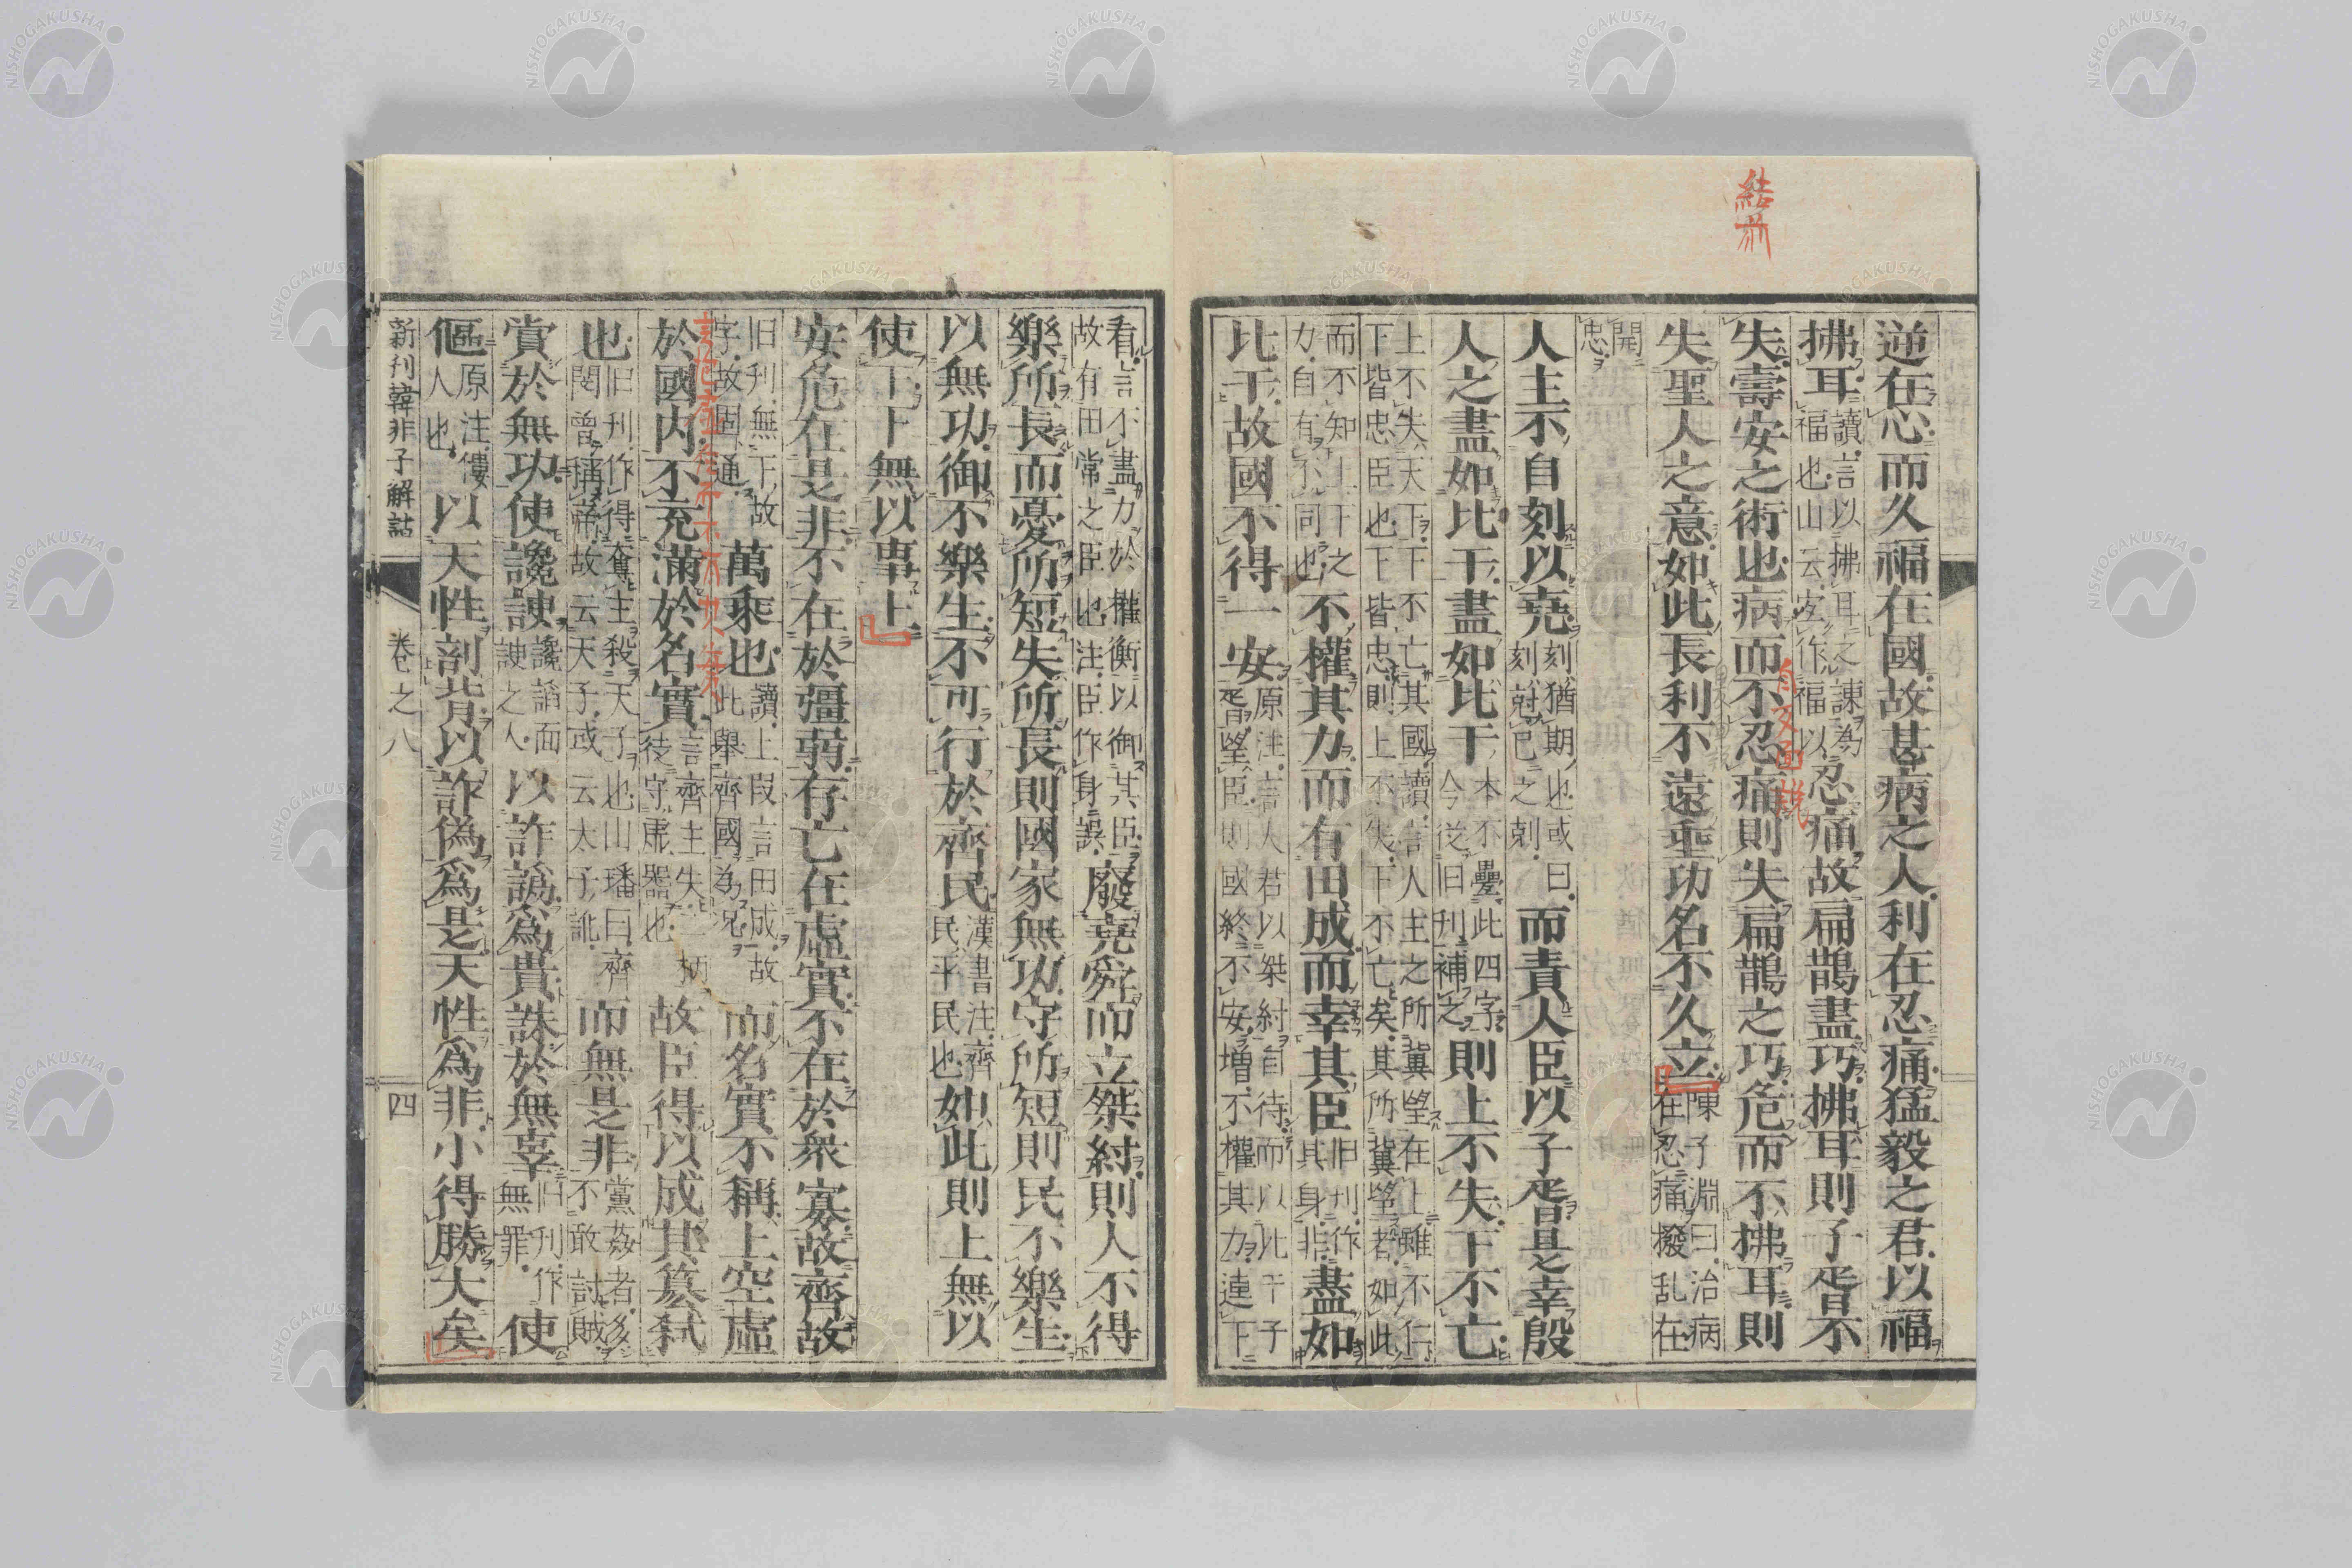 結前
逆在心而久福在國故甚病之人利在忍痛猛毅之君以福
拂耳讀言以拂耳之諫為福也山云定作福以忍痛故扁鵲盡巧拂耳則子胥不
失壽安之術也病而不忍痛則失扁鵲之巧危而不拂耳則
失聖人之意如此長利不遠垂功名不久立陳子淵曰治病在忍痛撥乱在
開忠
人主不自刻以堯刻猶期也或曰刻尅己之剋而責人臣以子胥是幸殷
人之盡如比干盡如比干本不疊此四字今從旧刊補之則上不失下不亡
上不失天下下不亡其國讀言人主之所冀望在上雖不仁下皆忠臣也下皆忠則上不失下不亡矣其所冀望者如此
而不知上下之力自有不同也不權其力而有田成而幸其臣旧刊作其身非盡如
比干故國不得一安原注言人君以桀紂自待而以比干子胥望臣則國終不安增不權其力連下
看言不盡力於權衡以御其臣故有田常之臣也注臣作身誤廢堯舜而立桀紂則人不得
樂所長而憂所短失所長則國家無功守所短則民不樂生
以無功御不樂生不可行於齊民漢書注齊民平民也如此則上無以
使下下無以事上
安危在是非不在於彊弱存亡在虛實不在於衆寡故齊故
旧刊無下故字故固通萬乘也讀上段言田成故此舉齊國為況而名實不稱上空虛
於國內不充滿於名實言齊主失二柄徒守虛器也故臣得以成其篡弒
也旧刊作得奪主殺天子也山璠曰齊閔曾稱帝故云天子或云太子訛而無是非黨姦者多不敢討賊
賞於無功使讒諛讒諂面諛之人以詐譌為貴誅於無辜旧刊作無罪使
傴原注僂人也以天性剖背以詐偽為是天性為非小得勝大矣
新刊韓非子解詁 卷之八 四